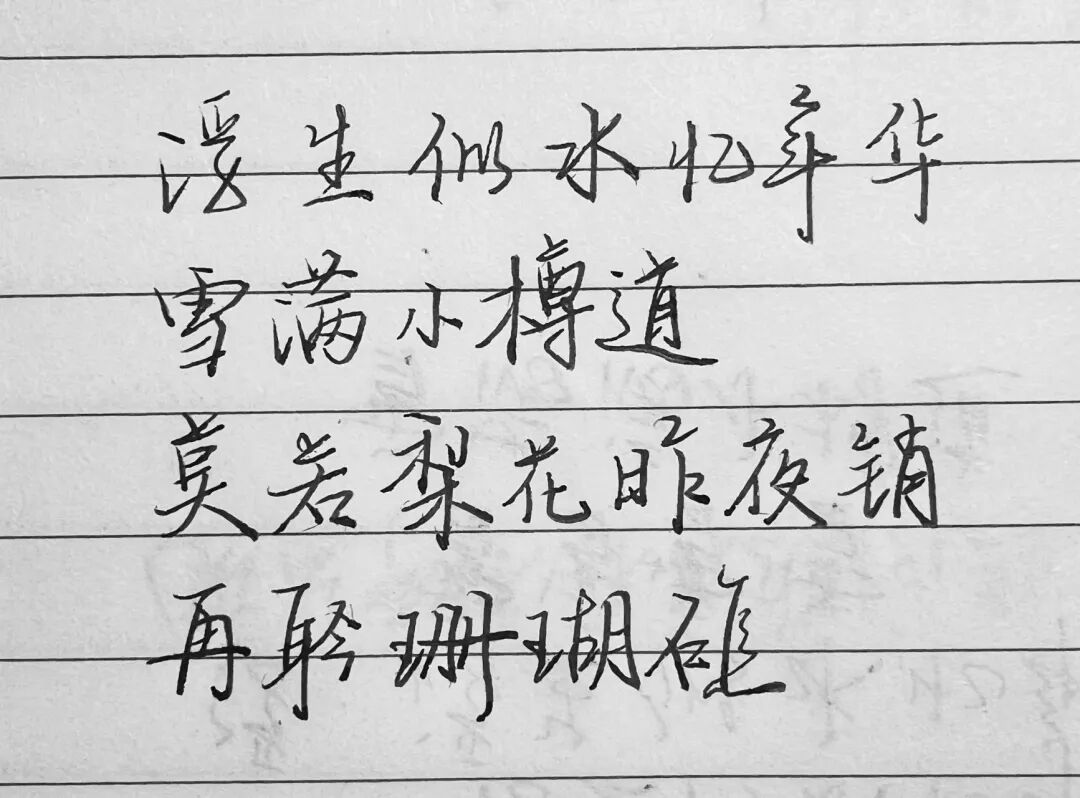 浮生似水忆年华
雪满小樽道
莫若梨花昨夜销
再聆珊瑚礁